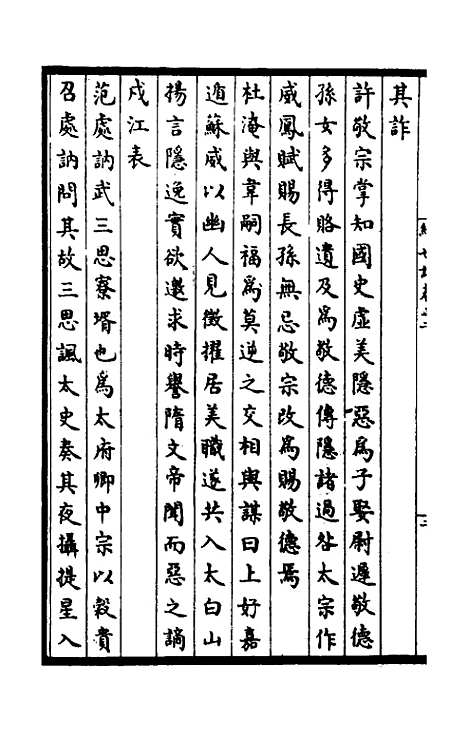 其詐
許敬宗掌知國史虛美隱惡爲子娶尉遲敬德
孫女多得賂遺及爲敬德傳隱諸過咎太宗作
威鳳賦賜長孫無忌敬宗改爲賜敬德焉
杜淹與韋嗣福爲莫逆之交相與謀曰上好嘉
遁蘇威以幽人見徵擢居美職遂共入太白山
揚言隱逸實欲邀求時譽隋文帝聞而惡之謫
戍江表
范處訥武三思寮壻也爲太府卿中宗以穀貴
召處訥問其故三思諷太史奏其夜攝提星入